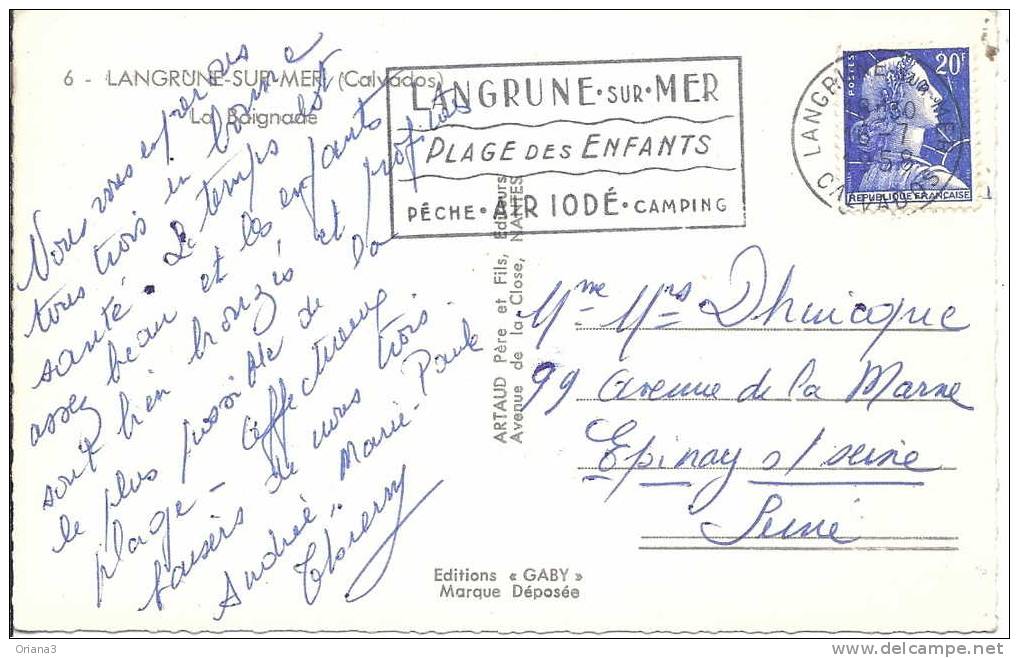 6 - LANGRUNE-SUR-MER (Calvados)
La Baignade
Nous vous espérons
tous trois en bonne
santé. Le temps est
assez beau et les enfants
sont bien bronzés et profitent
le plus possible de la
plage - affectueux
baisers de nous trois.
Andrée, Marie-Paule
Thierry
LANGRUNE·SUR·MER
PLAGE DES ENFANTS
PÊCHE·AIR IODÉ·CAMPING
LANGRUNE-SUR-MER
CALVADOS
POSTES
20F
REPUBLIQUE FRANÇAISE
ARTAUD Père et Fils, Editeurs
Avenue de la Close, NANTES
Mme Mrs Dhuicque
99 avenue de la Marne
Epinay s/seine
Seine
Editions « GABY »
Marque Déposée
Oriana3
delcampe.net